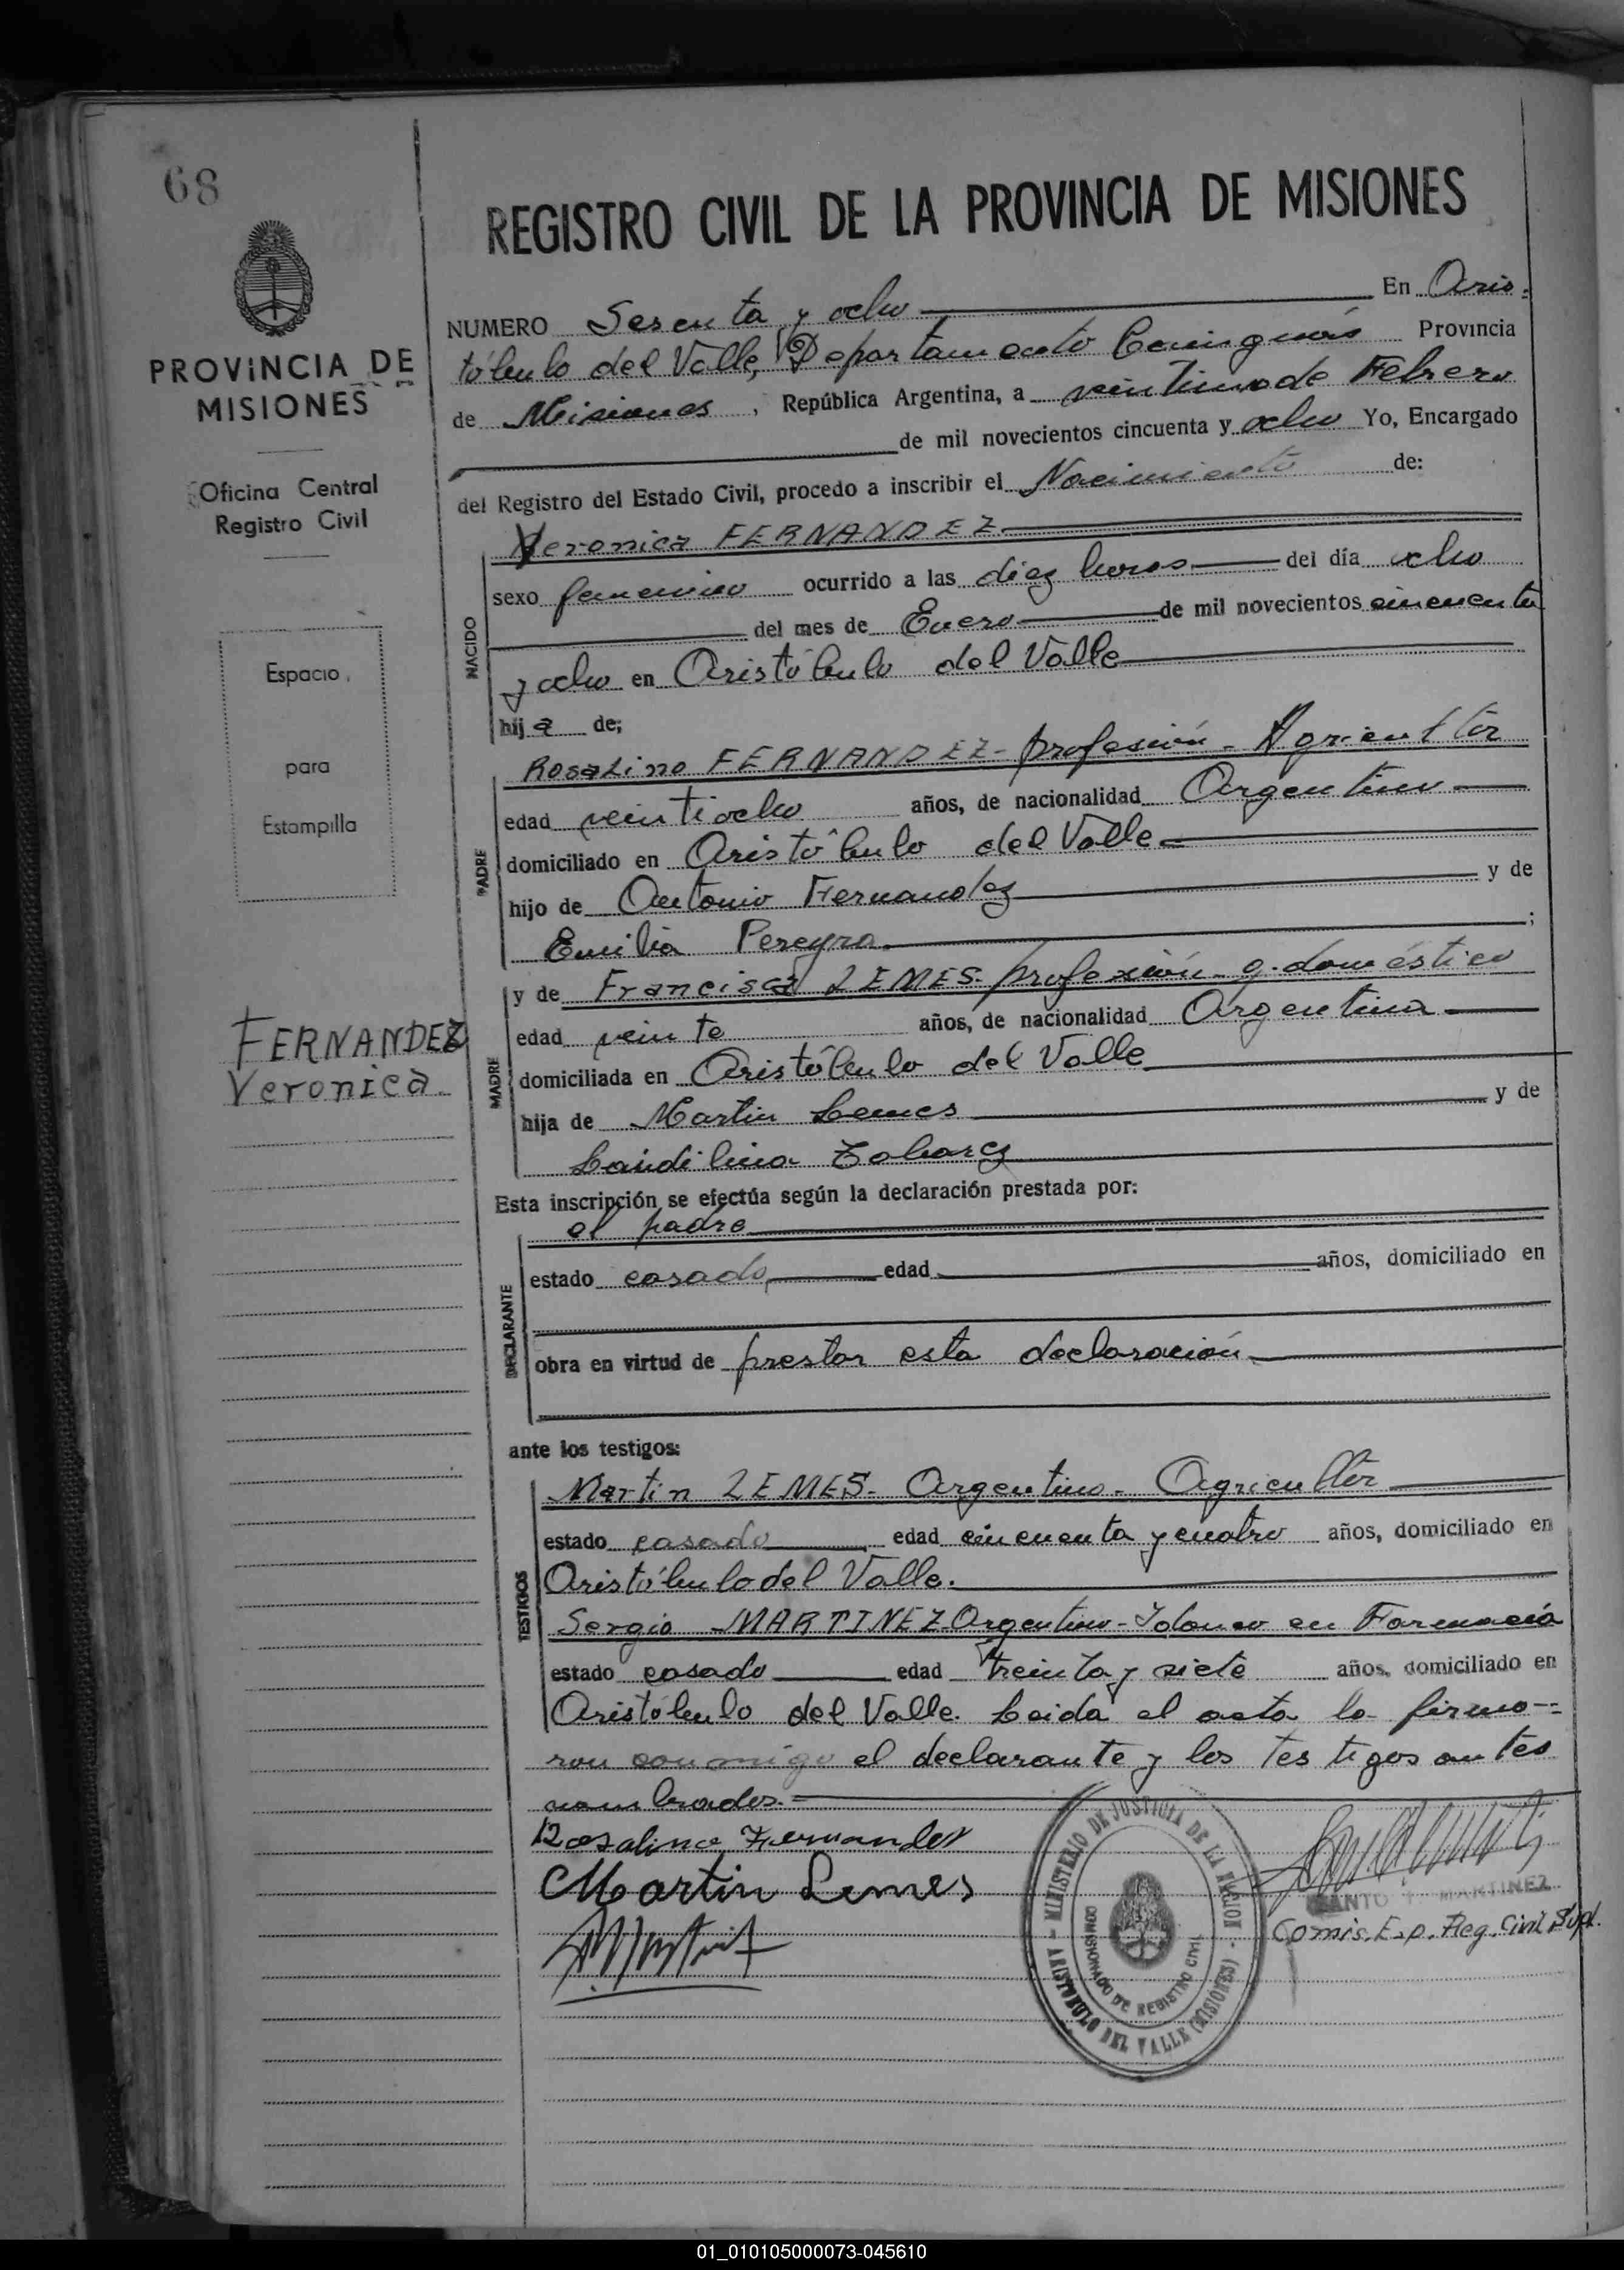 68
PROVINCIA DE
MISIONES
Oficina Central
Registro Civil
Espacio
para
Estampilla
FERNANDEZ
Veronica
REGISTRO CIVIL DE LA PROVINCIA DE MISIONES
NUMERO Sesenta y ocho En Aris-
tóbulo del Valle, Departamento Cainguás Provincia
de Misiones, República Argentina, a veintiuno de Febrero
de mil novecientos cincuenta y ocho Yo, Encargado
del Registro del Estado Civil, procedo a inscribir el Nacimiento de:
NACIDO
Veronica FERNANDEZ
sexo femenino ocurrido a las diez horas del día ocho
del mes de Enero de mil novecientos cincuenta
y ocho en Aristóbulo del Valle
hija de;
PADRE
Rosalino FERNANDEZ - profesión - Agricultor
edad veintiocho años, de nacionalidad Argentino
domiciliado en Aristóbulo del Valle
hijo de Antonio Fernandez y de
Emilia Pereyra ;
MADRE
y de Francisca LEMES - profesión - q. doméstico
edad veinte años, de nacionalidad Argentina
domiciliada en Aristóbulo del Valle
hija de Martin Lemes y de
Candilina
Esta inscripción se efectúa según la declaración prestada por:
DECLARANTE
el padre
estado casado edad años, domiciliado en
obra en virtud de prestar esta declaración
ante los testigos:
TESTIGOS
Martin LEMES - Argentino - Agricultor
estado casado edad cincuenta y cuatro años, domiciliado en
Aristóbulo del Valle.
Sergio MARTINEZ Argentino - Idoneo en Farmacia
estado casado edad treinta y siete años, domiciliado en
Aristóbulo del Valle. Leida el acta la firma-
ron conmigo el declarante y los testigos antes
nombrados.
Rosalino Fernandez
Martin Lemes
MINISTERIO DE JUSTICIA DE LA NACION
COMISIONADO DE REGISTRO CIVIL
ARISTOBULO DEL VALLE (MISIONES)
SANTO MARTINEZ
Comis. E.p. Reg. Civil Supl.
01_010105000073-045610